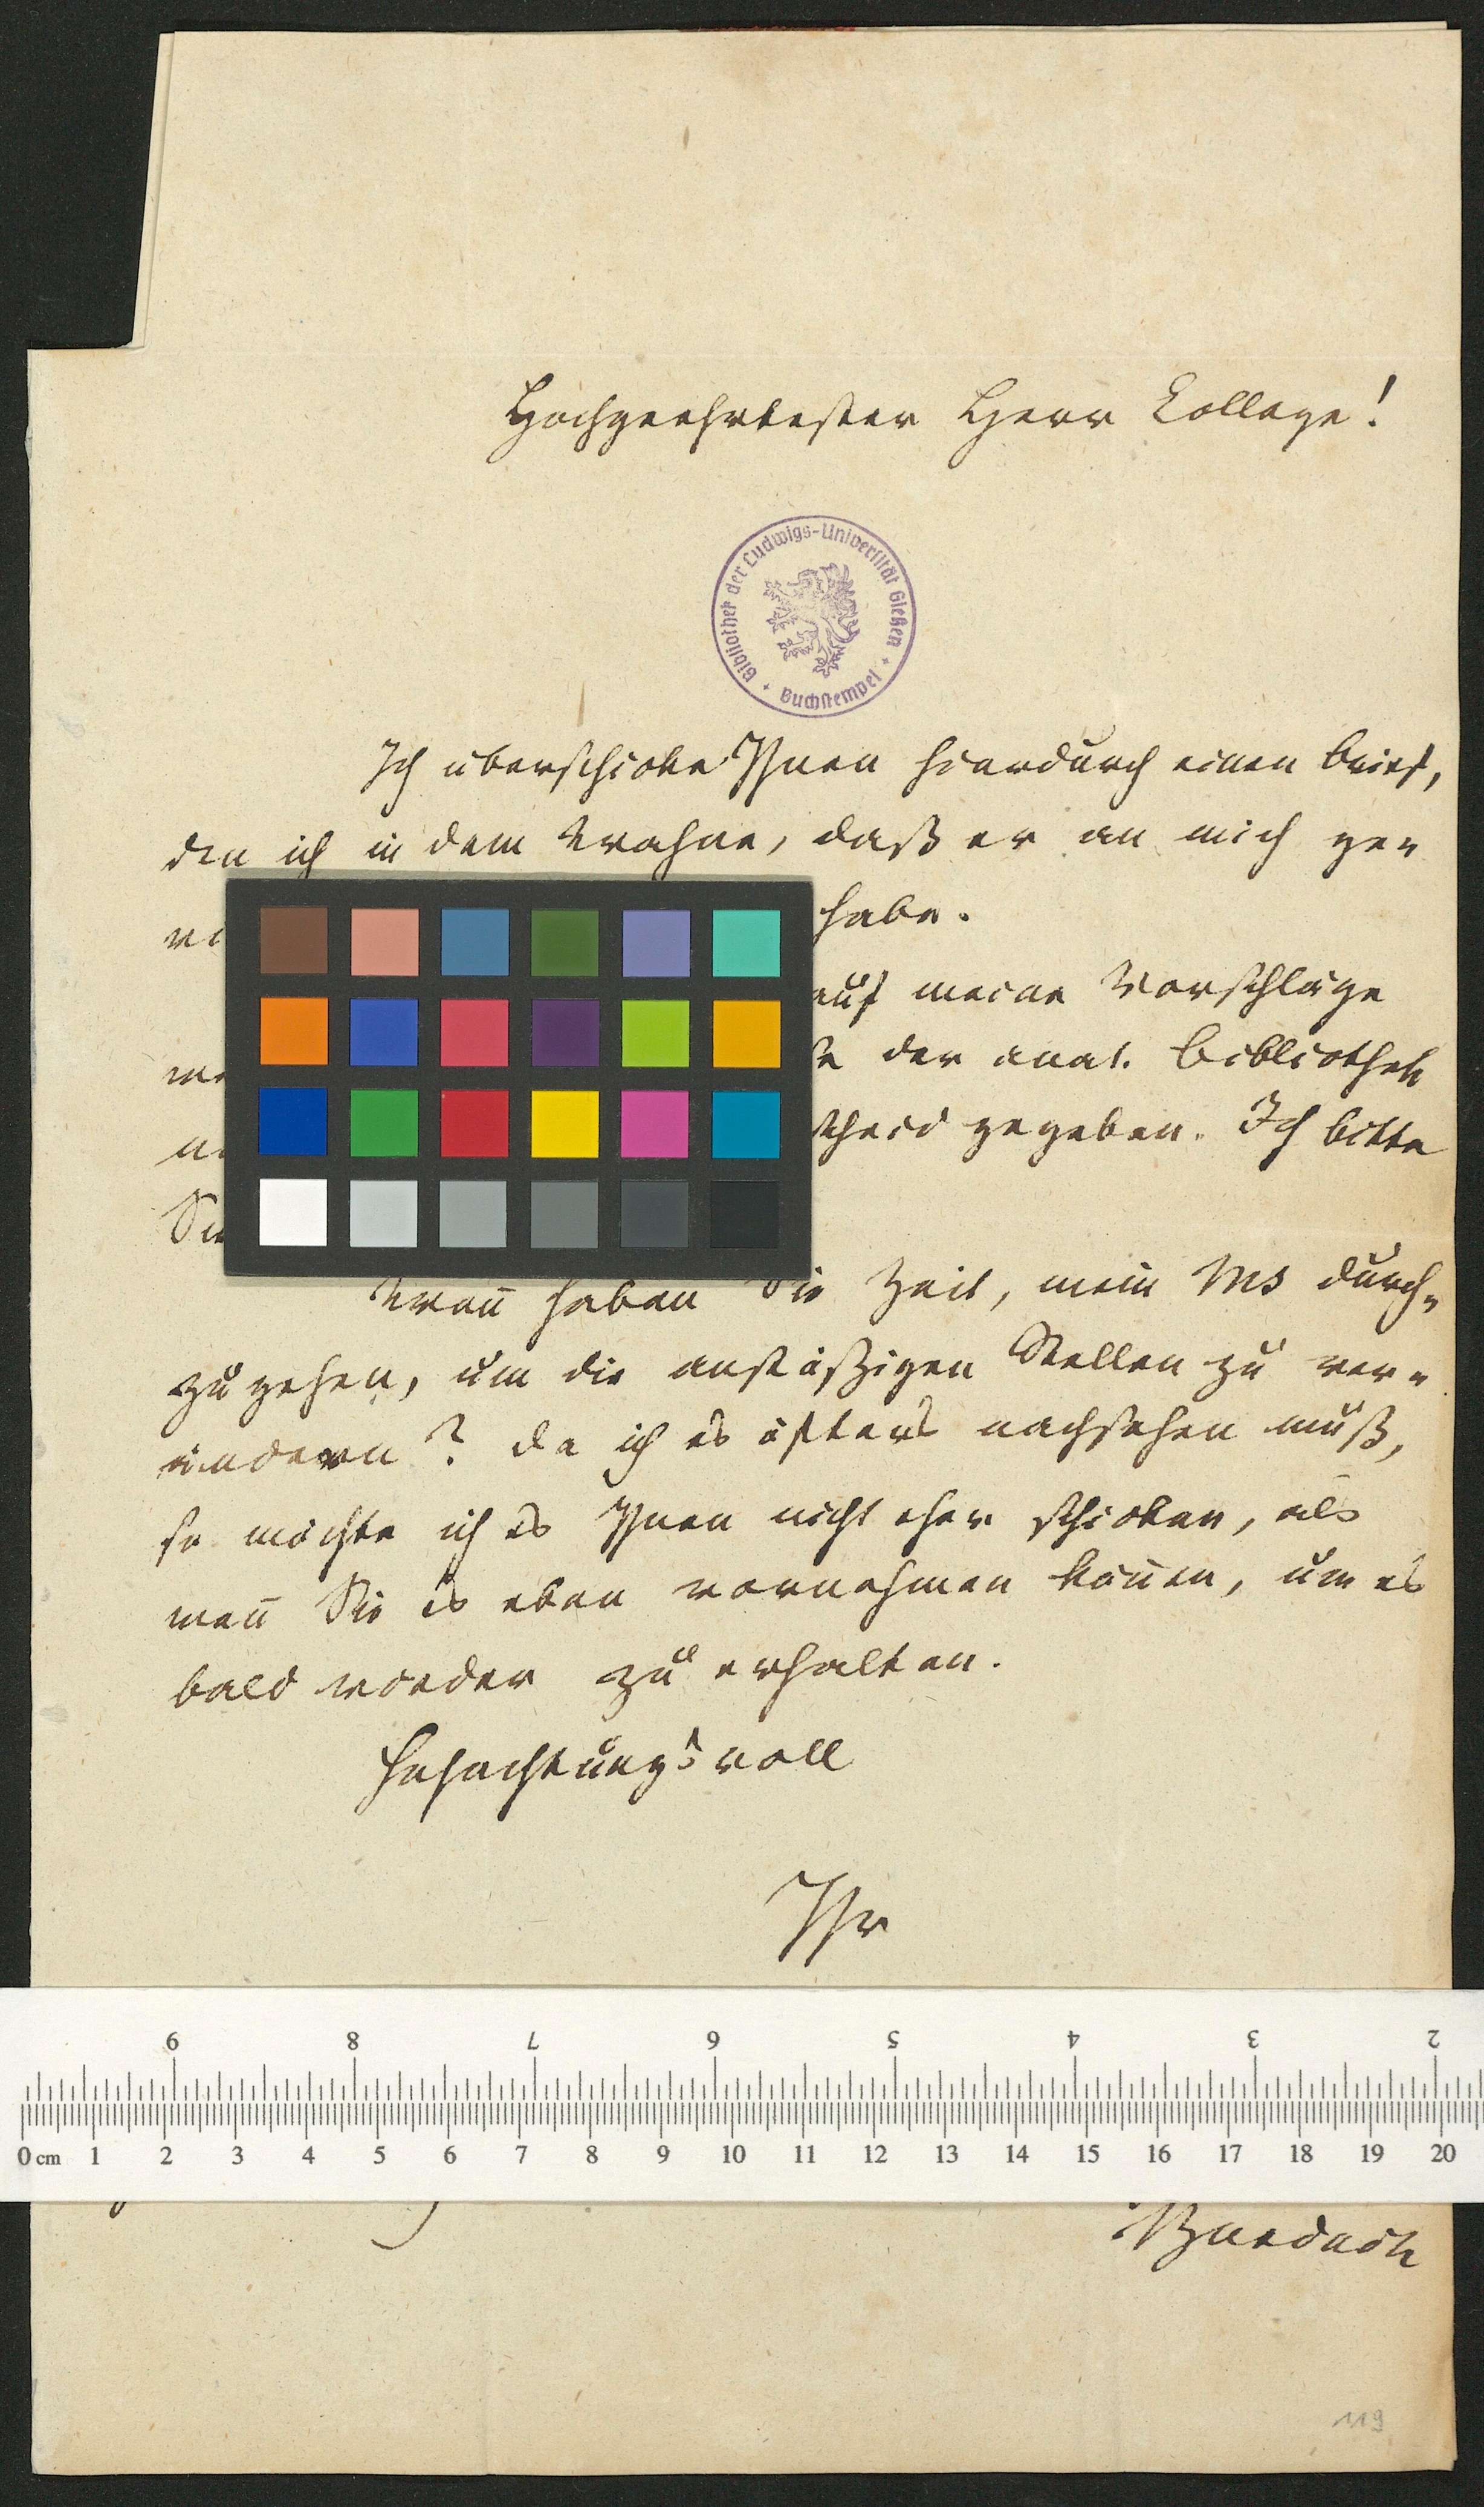 Hochgeehrtester Herr College!
Bibliothek der Ludwigs-Universität Gießen
Buchstempel
Ich überschicke Ihnen hierdurch einen Brief,
den ich in dem Wahne, daß er an mich ge=
habe.
auf meine Vorschläge
der anat. Bibliothek
gegeben. Ich bitte
Sie
Wann haben Sie Zeit, mein Ms durch=
zugehen, um die anstößigen Stellen zu ver=
ändern? Da ich es öfters nachsehen muß,
so möchte ich es Ihnen nicht eher schicken, als
wenn Sie es eben vornehmen können, um es
bald wieder zu erhalten.
Hochachtungsvoll
Ihr
9 8 7 6 5 4 3 2
0 cm 1 2 3 4 5 6 7 8 9 10 11 12 13 14 15 16 17 18 19 20
Burdach
119